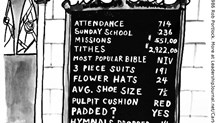 ATTENDANCE 714
SUNDAY SCHOOL 236
MISSIONS $551.00
TITHES $2,922.00
MOST POPULAR BIBLE NIV
3 PIECE SUITS 191
FLOWER HATS 24
AVG. SHOE SIZE 7½
PULPIT CUSHION RED
PADDED? YES
HYMNALS DROPPED
Rob Portlock.